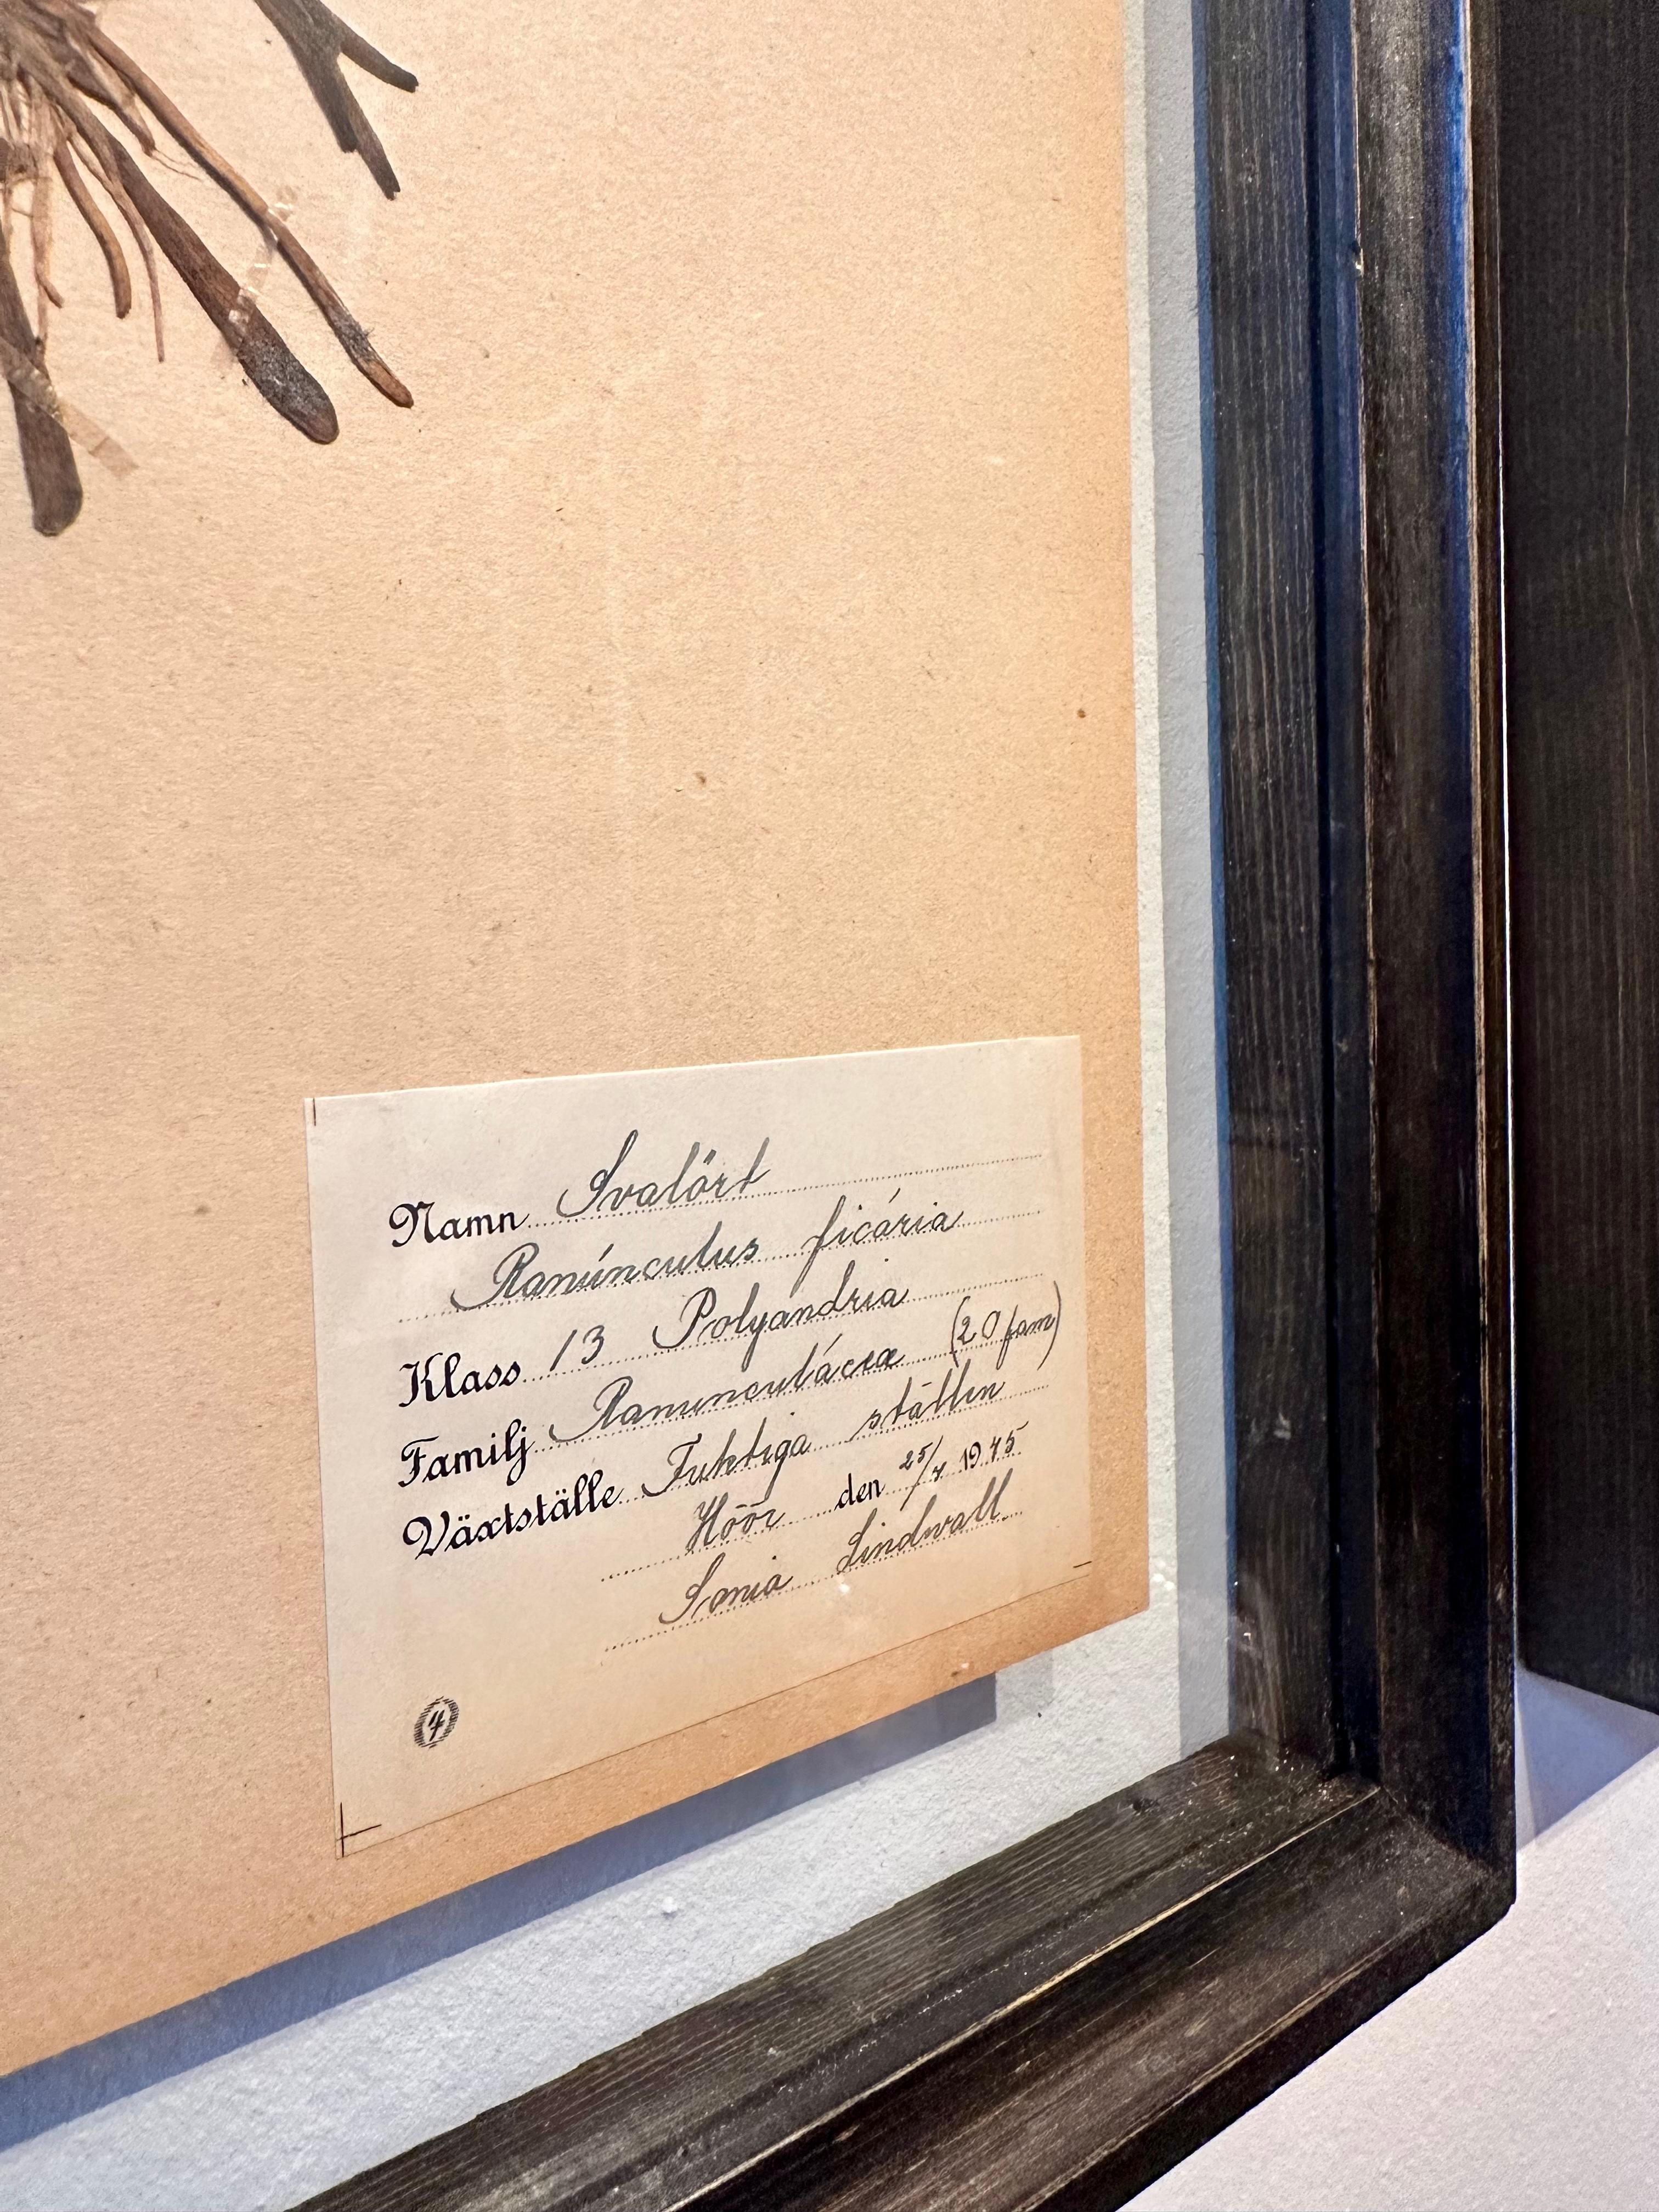 Namn Svalört
Ranúnculus ficária
Klass 13 Polyandria
Familj Ranunculáceæ (20 fam)
Växtställe Fuktiga ställen
Höör den 25/4 1945
Sonia Lindwall
4